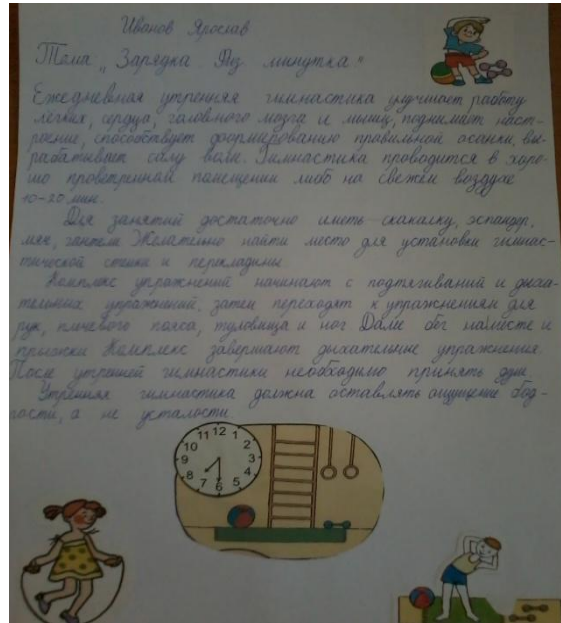 Иванов Ярослав
Тема „Зарядка Физ. минутка"
Ежедневная утренняя гимнастика улучшает работу
легких, сердца, головного мозга и мышц, поднимает наст-
роение, способствует формированию правильной осанки, вы-
рабатывает силу воли. Гимнастика проводится в хоро-
шо проветренном помещении либо на свежем воздухе
10-20 мин.
Для занятий достаточно иметь скакалку, эспандер,
мяч, гантели. Желательно найти место для установки гимнас-
тической стенки и перекладины.
Комплекс упражнений начинают с подтягиваний и дыха-
тельных упражнений, затем переходят к упражнениям для
рук, плечевого пояса, туловища и ног. Далее бег на месте и
прыжки. Комплекс завершают дыхательные упражнения.
После утренней гимнастики необходимо принять душ.
Утренняя гимнастика должна оставлять ощущение бод-
рости, а не усталости.
11 12 1
10 2
9 3
8 4
7 6 5